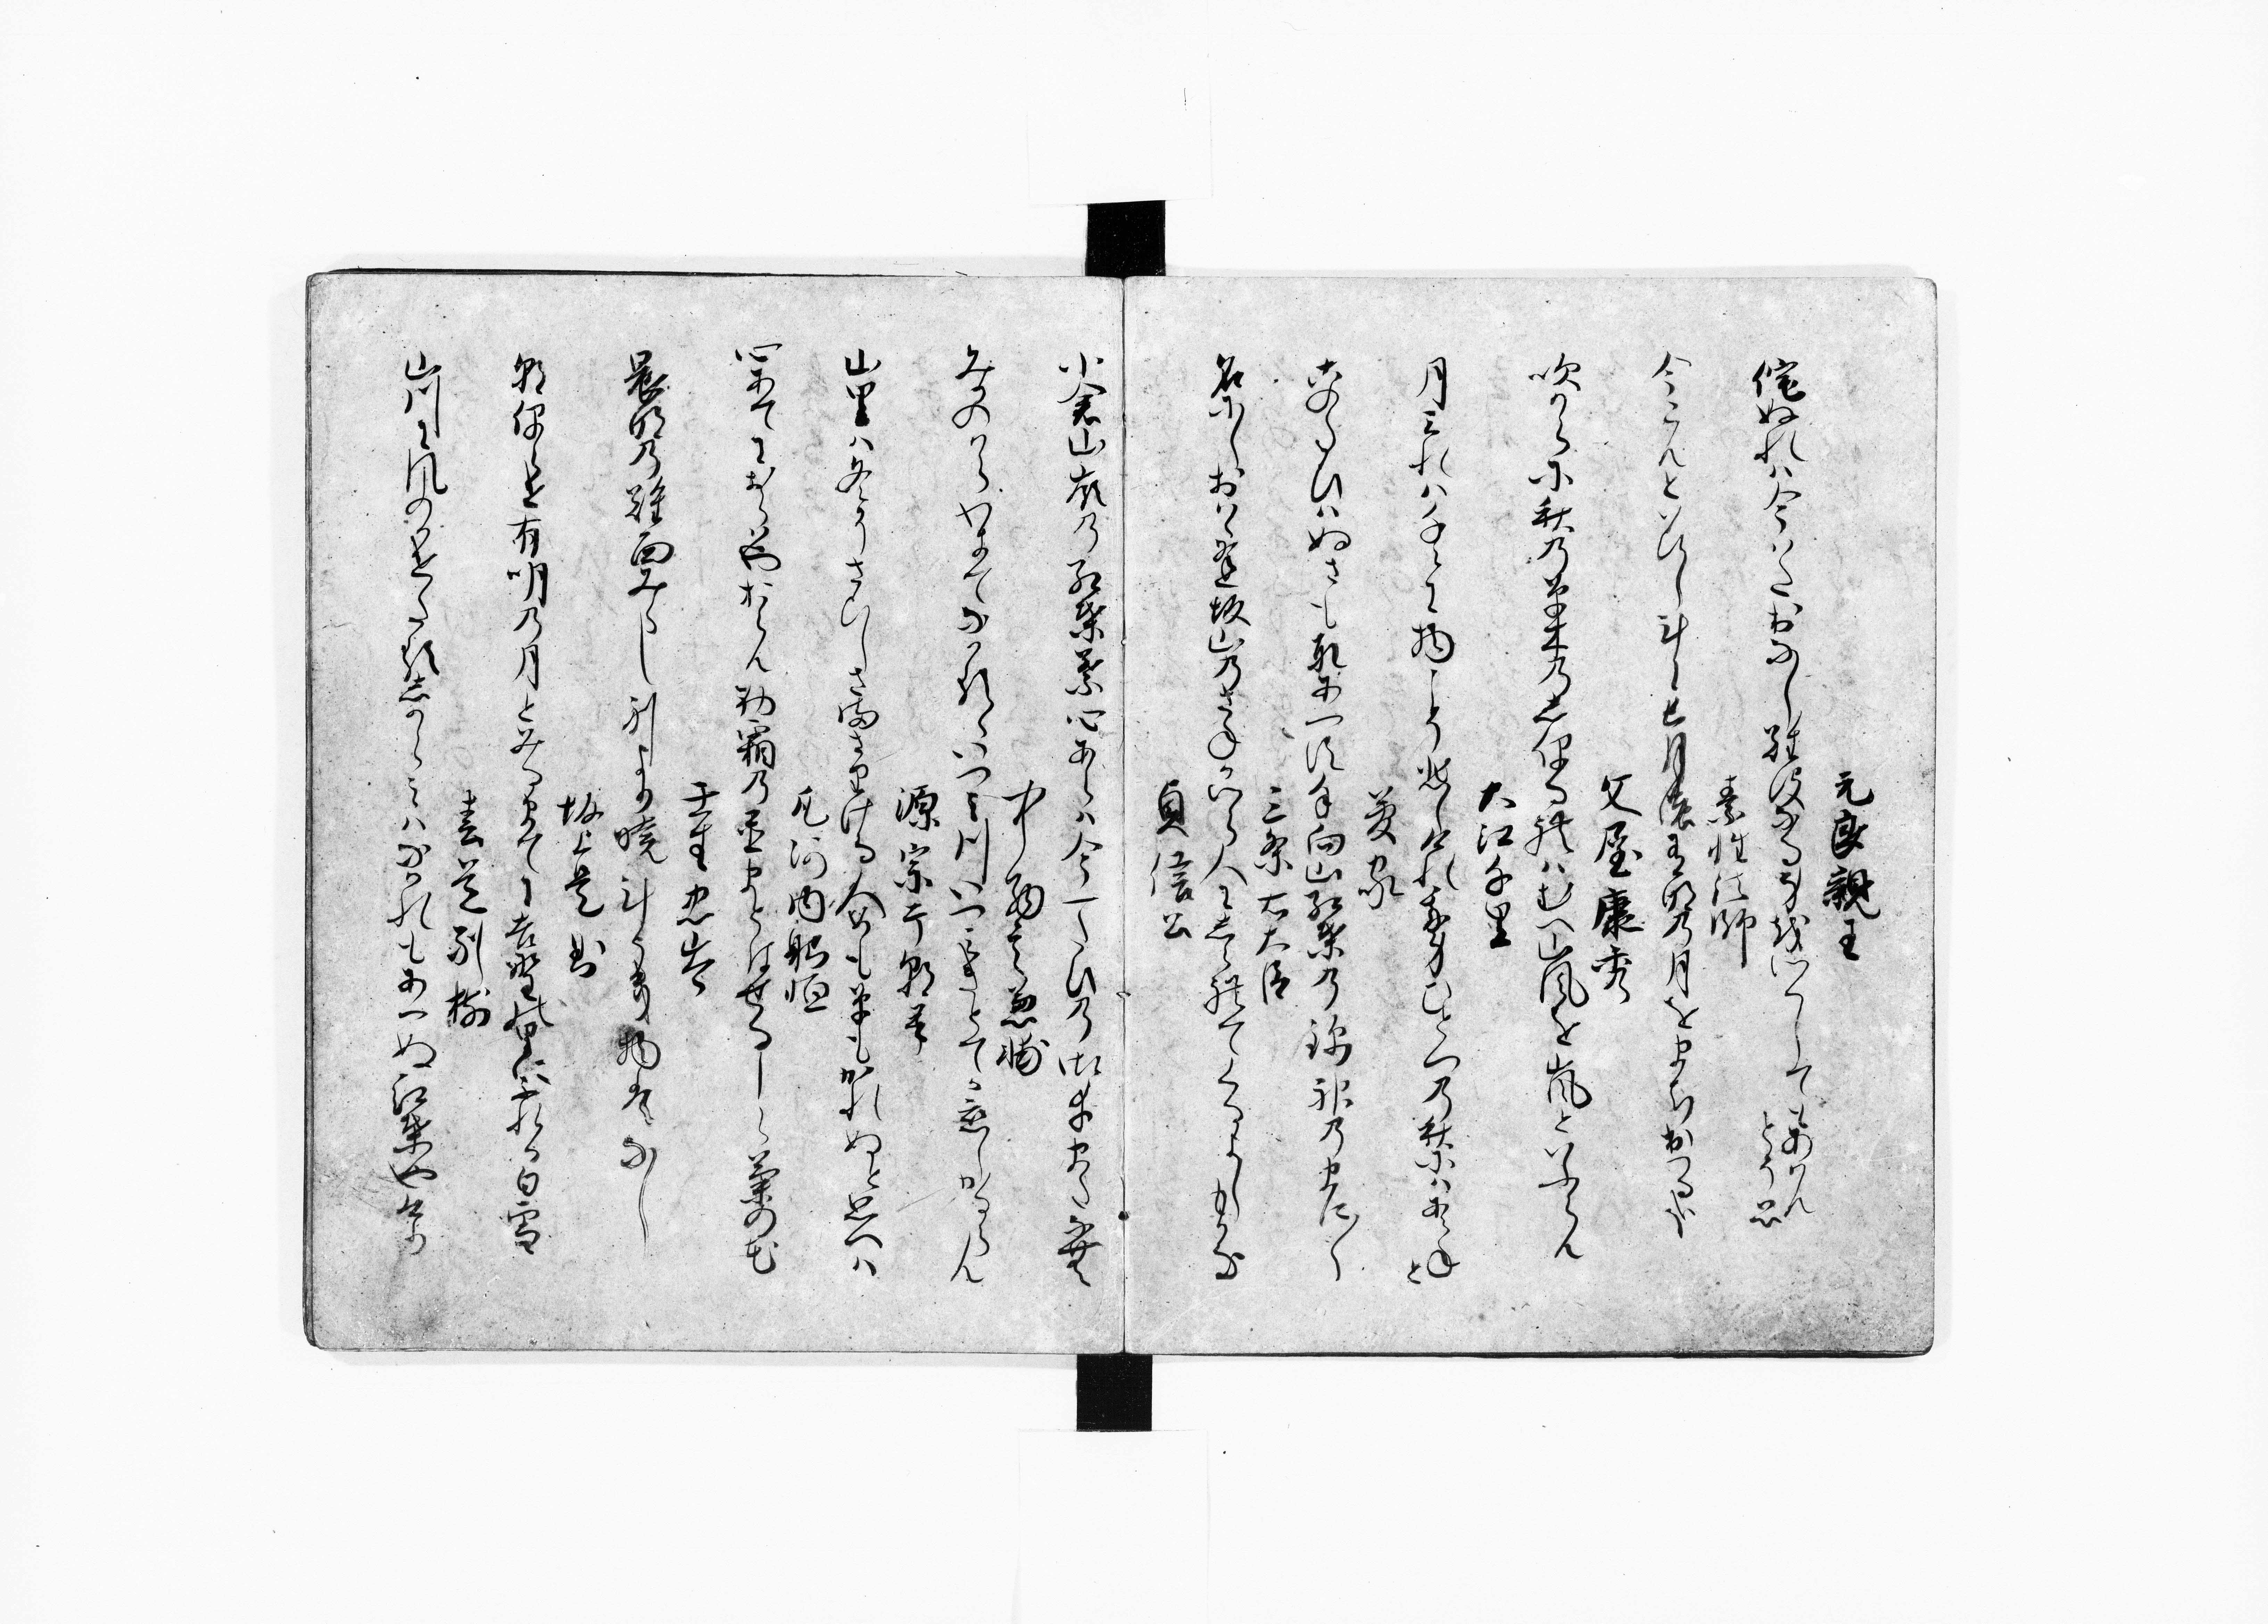 元良親王
侘ぬれは今はたおなし難波なる身越つくしてもあはん
とそ思
素性法師
今こんといひし斗に長月の有明の月をまち出つるかな
文屋康秀
吹からに秋乃草木乃しほるれはむへ山風を嵐といふらん
大江千里
月みれは千々に物こそ悲しけれ我身ひとつ乃秋にはあらね
と
菅家
このたひはぬさも取あへす手向山紅葉乃錦神乃まに〱
三条右大臣
名にしおはゝ逢坂山乃さねかつら人にしられてくるよしもかな
貞信公
小倉山峯乃紅葉葉心あらは今一たひ乃御幸またなむ
中納言兼輔
みかのはらわきてなかるゝいつみ川いつみきとてか恋しかるらん
源宗于朝臣
山里は冬そさひしさまさりける人めも草もかれぬと思へは
凡河内躬恒
心あてにおらはやおらん初霜乃置まとはせるしら菊の花
壬生忠岑
晨明乃難面みえし別より暁斗うき物はなし
坂上是則
朝ほらけ有明乃月とみるまてに吉野の里にふれる白雪
春道列樹
山川に風のかけたるしからみはなかれもあへぬ紅葉也けり